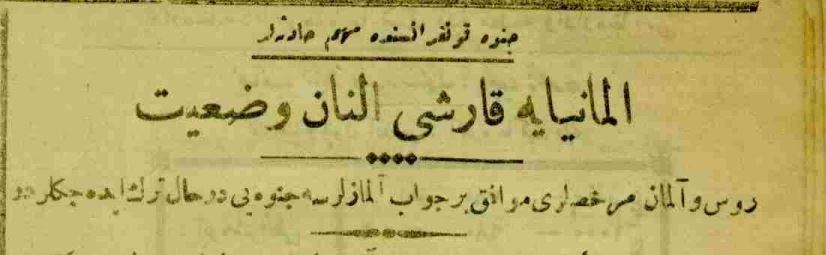 جنوه قونفرانسنده مهم حادثه‌لر
المانیایه قارشی النان وضعیت
روس و آلمان مرخصلری موافق بر جواب آلمازلرسه جنوه‌یی درحال ترك ایده‌جكلردر